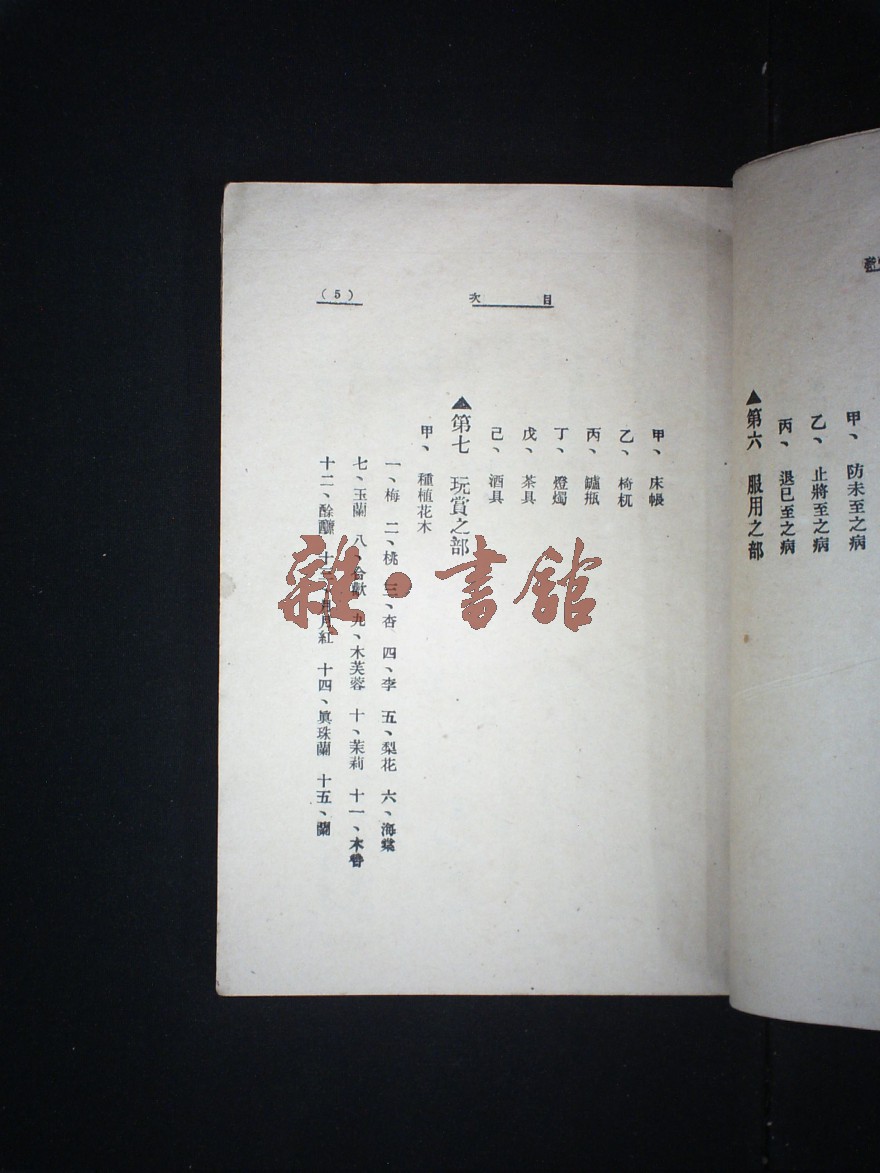 甲、防未至之病
乙、止將至之病
丙、退已至之病
▲第六 服用之部
目次
(5)
甲、床帳
乙、椅杌
丙、罏瓶
丁、燈燭
戊、茶具
己、酒具
▲第七 玩賞之部
甲、種植花木
一、梅 二、桃 三、杏 四、李 五、梨花 六、海棠
七、玉蘭 八、合歡 九、木芙蓉 十、茉莉 十一、木香
十二、酴醾 十三、月月紅 十四、眞珠蘭 十五、蘭
雜·書館